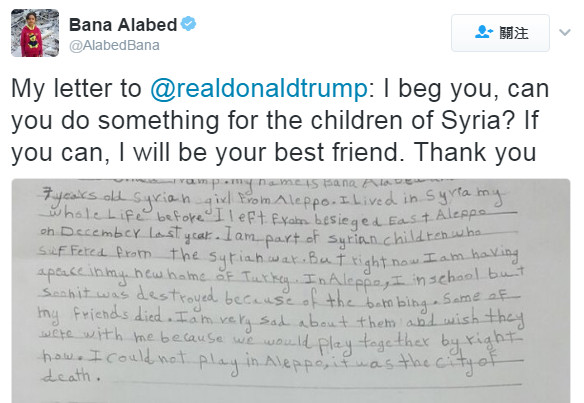 Bana Alabed
@AlabedBana
關注
My letter to @realdonaldtrump: I beg you, can
you do something for the children of Syria? If
you can, I will be your best friend. Thank you
Trump. my name is Bana Alabed
7 years old Syrian girl from Aleppo. I Lived in Syria my
whole Life before I left from besieged East Aleppo
on December last year. I am part of syrian children who
suffered from the syrian war. But right now I am having
a peace in my new home of Turkey. In Aleppo, I in school but
soon it was destroyed because of the bombing. Some of
my friends died. I am very sad about them and wish they
were with me because we would play together by right
now. I could not play in Aleppo, it was the city of
death.